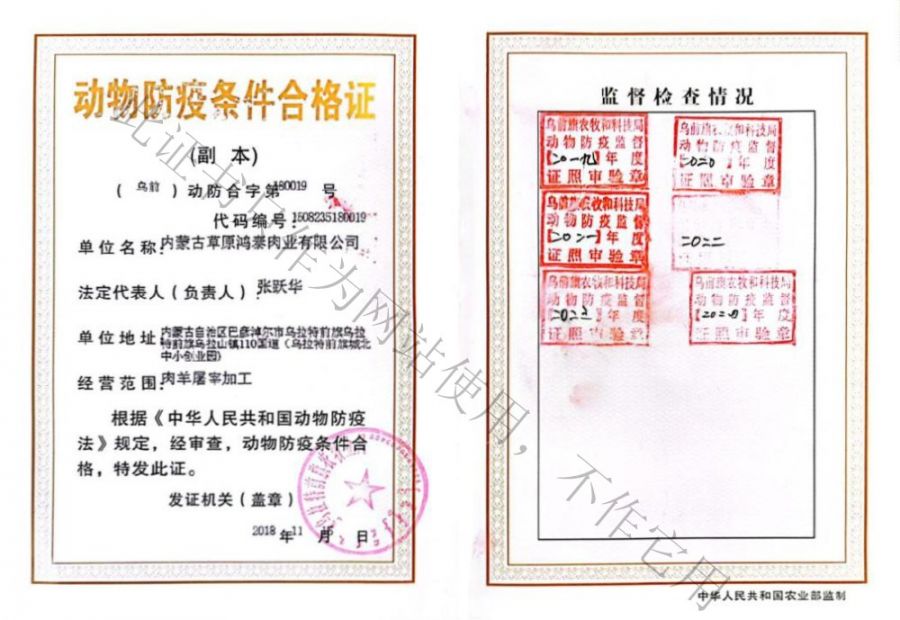 动物防疫条件合格证
(副 本)
( 乌前 ) 动防合字第 180019 号
代码编号: 1508235180019
单位名称: 内蒙古草原鸿寨肉业有限公司
法定代表人(负责人): 张跃华
单位地址: 内蒙古自治区巴彦淖尔市乌拉特前旗乌拉
特前旗乌拉山镇110国道(乌拉特前旗城北
中小创业园)
经营范围: 肉羊屠宰加工
根据《中华人民共和国动物防疫
法》规定,经审查,动物防疫条件合
格,特发此证。
发证机关(盖章)
2018 年 11 月 日
监督检查情况
乌前旗农牧和科技局
动物防疫监督
【二〇一九】年度
证照审验章
乌前旗农牧和科技局
动物防疫监督
【2020】年度
证照审验章
乌前旗农牧和科技局
动物防疫监督
【二〇二一】年度
证照审验章
2022
乌前旗农牧和科技局
动物防疫监督
年度
证照审验章
乌前旗农牧和科技局
动物防疫监督
年度
证照审验章
中华人民共和国农业部监制
此证书只作为网站使用,不作它用